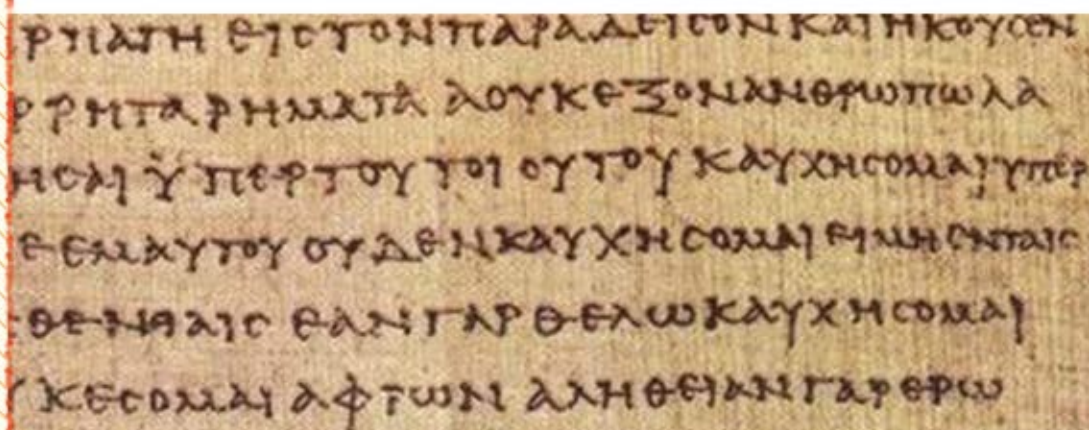 ΡΠΑΓΗ ΕΙϹ ΤΟΝ ΠΑΡΑΔΕΙϹΟΝ ΚΑΙ ΗΚΟΥϹΕΝ
ΡΡΗΤΑ ΡΗΜΑΤΑ Α ΟΥΚ ΕΞΟΝ ΑΝΘΡΩΠΩ ΛΑ
ΗϹΑΙ ΫΠΕΡ ΤΟΥ ΤΟΙΟΥΤΟΥ ΚΑΥΧΗϹΟΜΑΙ ΥΠΕΡ
ΕΜΑΥΤΟΥ ΟΥΔΕΝ ΚΑΥΧΗϹΟΜΑΙ ΕΙ ΜΗ ΕΝ ΤΑΙϹ
ϹΘΕΝΙΑΙϹ ΕΑΝ ΓΑΡ ΘΕΛΩ ΚΑΥΧΗϹΟΜΑΙ
Υ ΚΕϹΟΜΑΙ ΑΦΡΩΝ ΑΛΗΘΕΙΑΝ ΓΑΡ ΕΡΩ